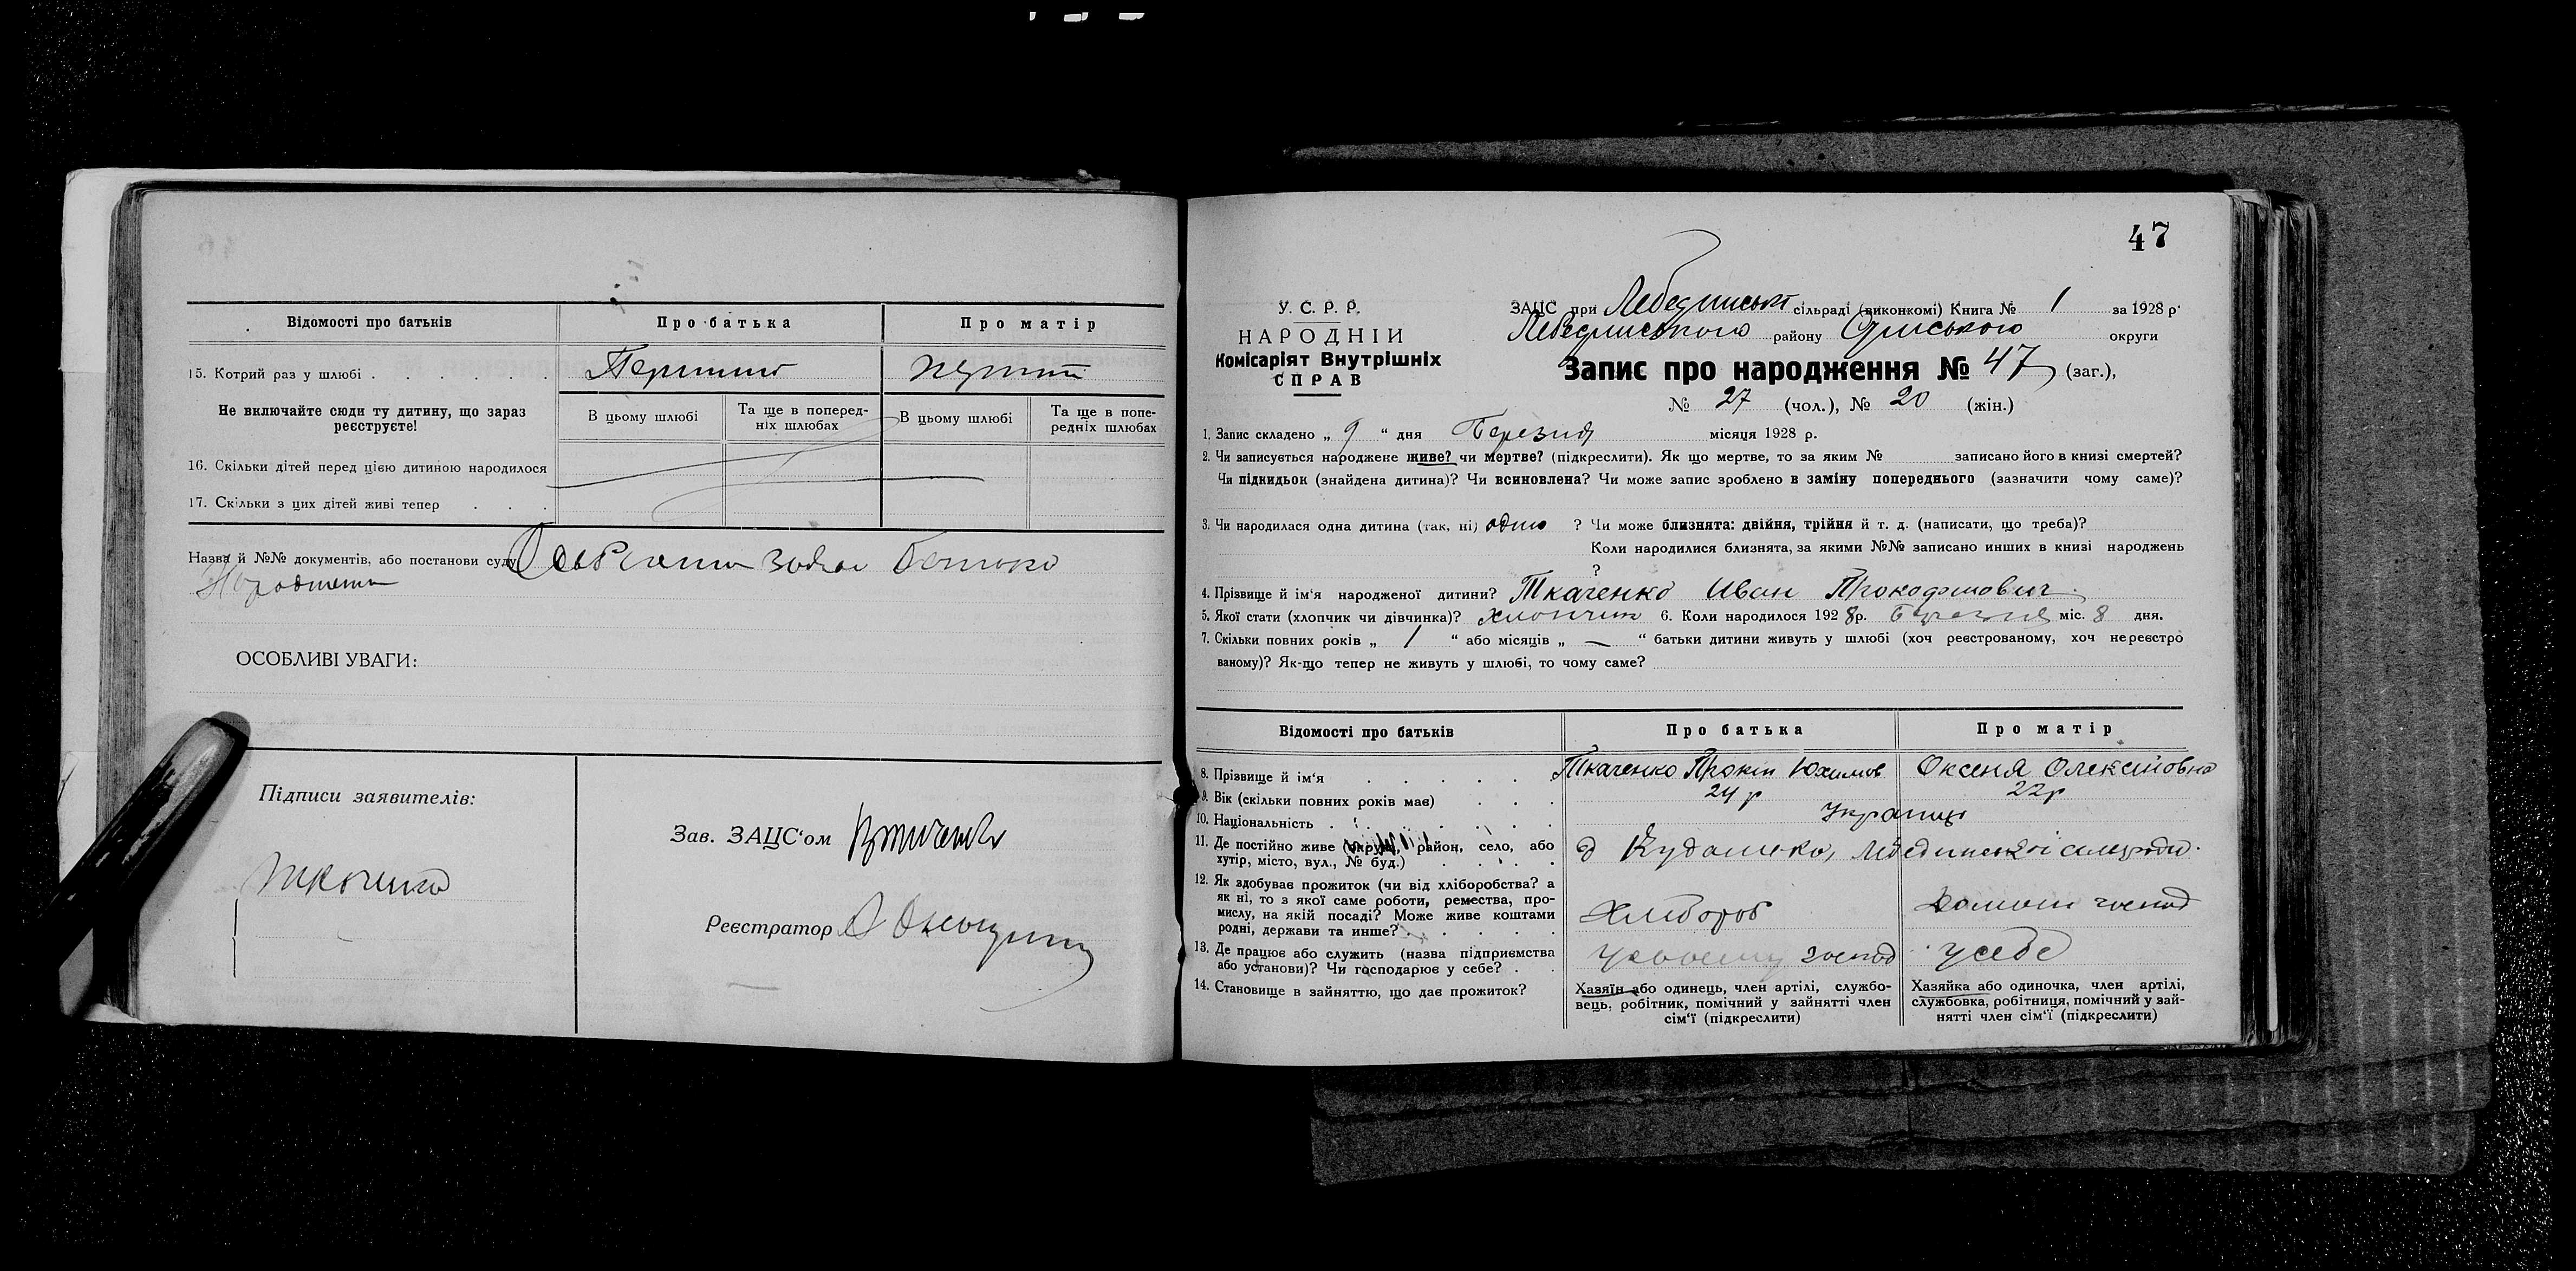 Відомості про батьків Про батька Про матір
15. Котрий раз у шлюбі . . . . . . Перший перший
Не включайте сюди ту дитину, що зараз реєструєте!
В цьому шлюбі Та ще в попередніх шлюбах В цьому шлюбі Та ще в попередніх шлюбах
16. Скільки дітей перед цією дитиною народилося
17. Скільки з цих дітей живі тепер . . .
Назва й №№ документів, або постанови суду
ОСОБЛИВІ УВАГИ:
Підписи заявителів:
Зав. ЗАЦС'ом
Реєстратор
47
У. С. Р. Р.
НАРОДНІЙ
Комісаріят Внутрішніх
СПРАВ
ЗАЦС при Лебединські сільраді (виконкомі) Книга № 1 за 1928 р.
Лебединського району Сумського округи
Запис про народження № 47 (заг.),
№ 27 (чол.), № 20 (жін.)
1. Запис складено „ 9 “ дня Березня місяця 1928 р.
2. Чи записується народжене живе? чи мертве? (підкреслити). Як що мертве, то за яким № записано його в книзі смертей?
Чи підкидьок (знайдена дитина)? Чи всиновлена? Чи може запис зроблено в заміну попереднього (зазначити чому саме)?
3. Чи народилася одна дитина (так, ні) одно ? Чи може близнята: двійня, трійня й т. д. (написати, що треба)?
Коли народилися близнята, за якими №№ записано инших в книзі народжень
?
4. Прізвище й ім'я народженої дитини? Ткаченко Иван Прокофиович
5. Якої стати (хлопчик чи дівчинка)? хлопчик 6. Коли народилося 1928 р. Березня міс. 8 дня.
7. Скільки повних років „ 1 “ або місяців „ — “ батьки дитини живуть у шлюбі (хоч реєстрованому, хоч нереєстро
ваному)? Як-що тепер не живуть у шлюбі, то чому саме?
Відомості про батьків Про батька Про матір
8. Прізвище й ім'я . . . . . Ткаченко Прокіп Юхимов Оксеня Олексіовна
9. Вік (скільки повних років має) . . . 24 р 22 р
10. Національність . . . . . . . . Українці
11. Де постійно живе (округа, район, село, або
хутір, місто, вул., № буд.) . . . . .
12. Як здобуває прожиток (чи від хліборобства? а
як ні, то з якої саме роботи, ремества, про-
мислу, на якій посаді? Може живе коштами
родні, держави та инше? . . . . . Хлібороб
13. Де працює або служить (назва підприємства
або установи)? Чи господарює у себе? . . у своєму господ у себе
14. Становище в зайняттю, що дає прожиток?
Хазяїн або одинець, член артілі, службо-
вець, робітник, помічний у зайнятті член
сім'ї (підкреслити)
Хазяйка або одиночка, член артілі,
службовка, робітниця, помічний у зай-
нятті член сім'ї (підкреслити)